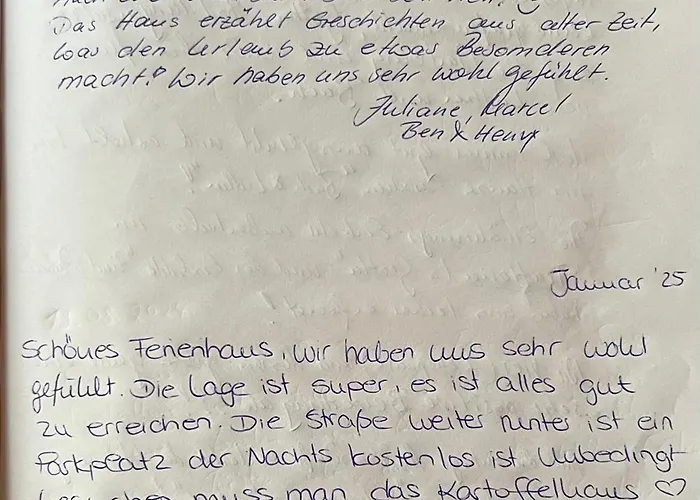 Das Haus erzählt Geschichten aus alter Zeit,
was den Urlaub zu etwas Besonderen
macht! Wir haben uns sehr wohl gefühlt.
Juliane, Marcel
Ben &
Januar '25
Schönes Ferienhaus, wir haben uns sehr wohl
gefühlt. Die Lage ist super, es ist alles gut
zu erreichen. Die Straße weiter runter ist ein
Parkplatz der Nachts kostenlos ist. Unbedingt
muss man das Kartoffelhaus ♡